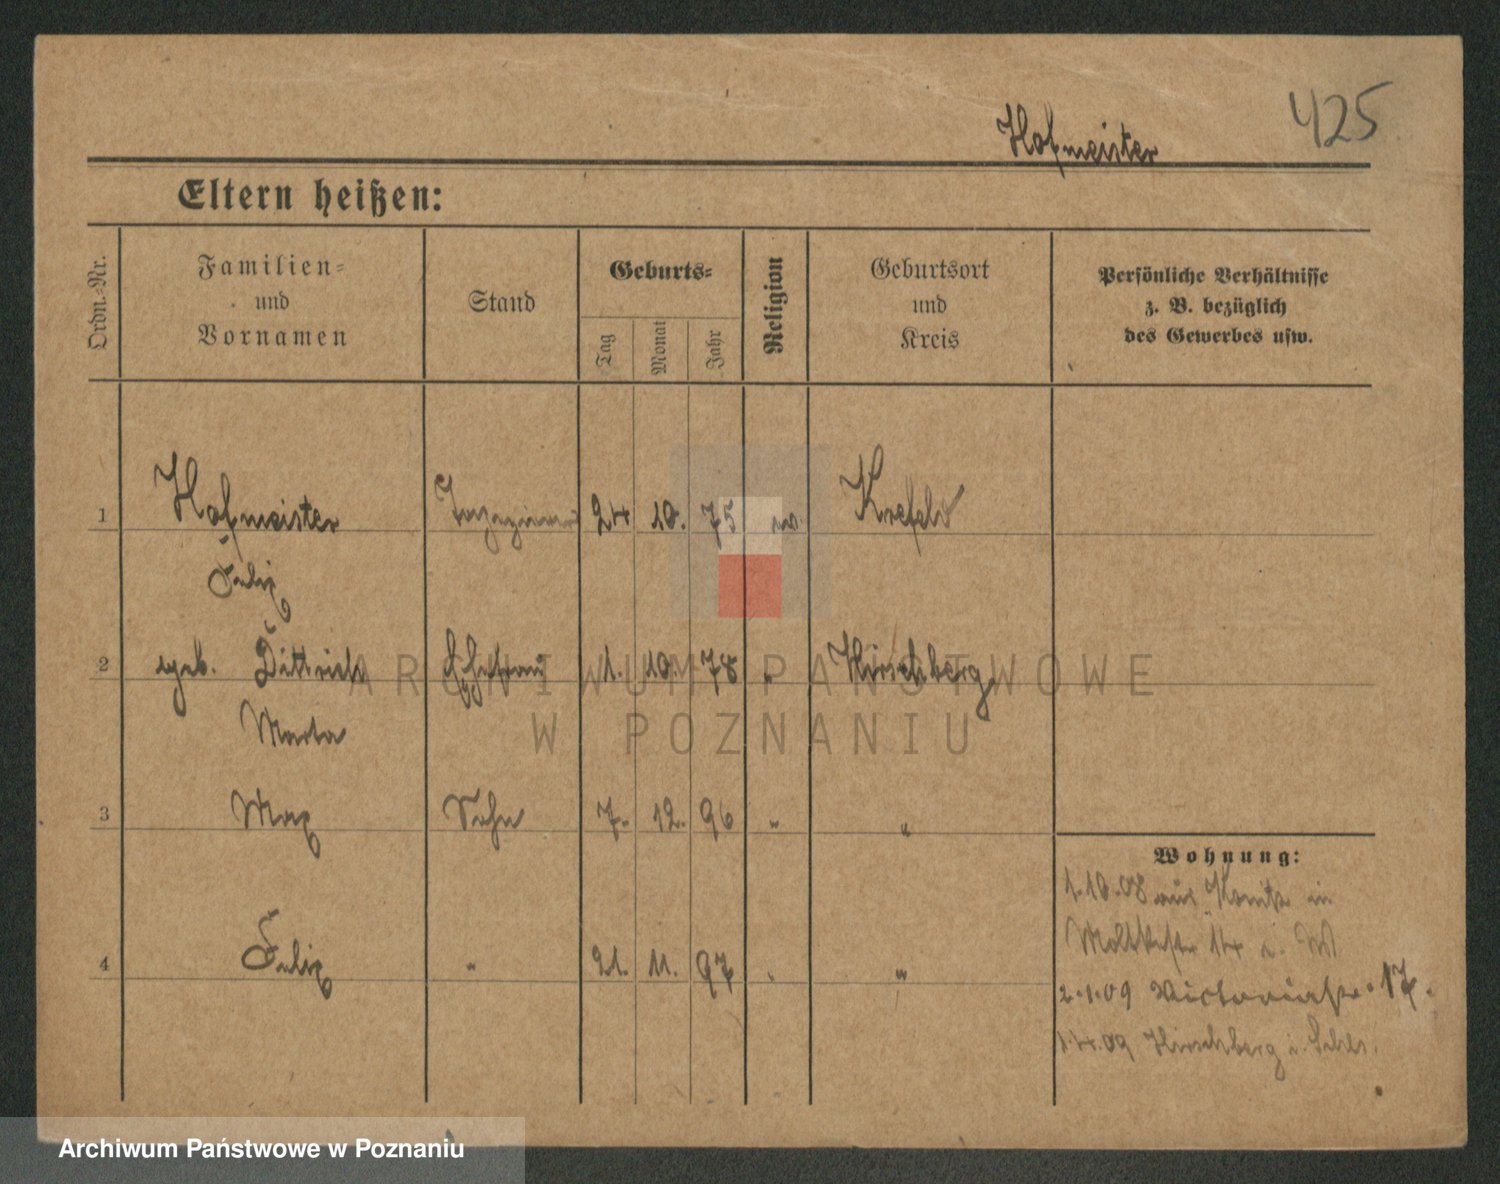 425
Hofmeister
Eltern heißen:
Ordn.-Nr.
Familien-
und
Vornamen
Stand
Geburts-
Tag
Monat
Jahr
Religion
Geburtsort
und
Kreis
Persönliche Verhältnisse
z. B. bezüglich
des Gewerbes usw.
1 Hofmeister 24 10. 75 Krefeld
Felix
2 geb. Dittrich Ehefrau 1. 10. 78 " Hirschberg
Marta
3 Max Sohn 7. 12. 96 " "
4 Felix " 21. 11. 97 " "
Wohnung:
1.10.08 aus Konitz in
Moltkestr 14
2.1.09 Victoriastr. 17.
1.4.09 Hirschberg i. Schles.
ARCHIWUM PAŃSTWOWE
W POZNANIU
Archiwum Państwowe w Poznaniu